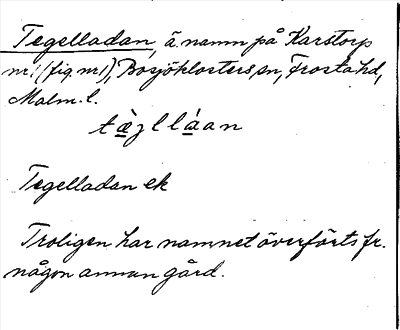 Tegelladan, ä. namn på Karstorp
nr 1 (fig. nr 1), Bosjöklosters sn, Frosta hd,
Malm. l.
tæ̀gllàan
Tegelladan ek
Troligen har namnet överförts fr.
någon annan gård.